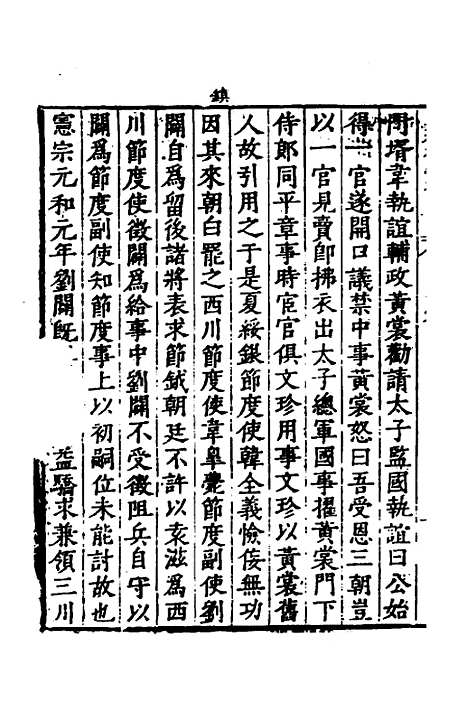 鎮
時壻韋執誼輔政黃裳勸請太子監國執誼曰公始
得一官遂開口議禁中事黃裳怒曰吾受恩三朝豈
以一官見賣卽拂衣出太子總軍國事擢黃裳門下
侍郎同平章事時宦官俱文珍用事文珍以黃裳舊
人故引用之于是夏綏銀節度使韓全義憸佞無功
因其來朝白罷之西川節度使韋皋薨節度副使劉
闢自爲留後諸將表求節鉞朝廷不許以袁滋爲西
川節度使徵闢爲給事中劉闢不受徵阻兵自守以
闢爲節度副使知節度事上以初嗣位未能討故也
憲宗元和元年劉闢旣 益驕求兼領三川